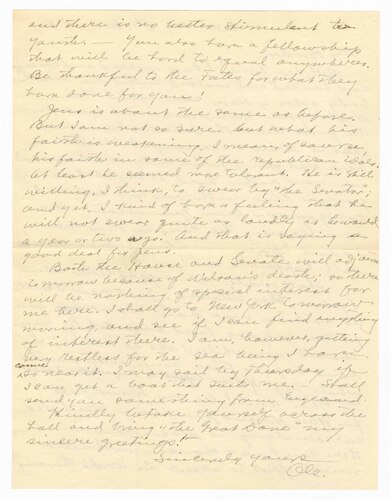 and there is no better stimulent to
Youth. — You also have a fellowship
that will be hard to equal anywheres.
Be thankful to the Fates for what they
have done for you!
Jens is about the same as before.
But I am not so sure but what his
faith is weakening, I mean, of course
his faith in some of the republican idols.
at least he seemed more tolerant. He is still
willing, I think, to swear by "the Senator",
and yet, I kind of have a feeling that he
will not swear quite as loudly as he would
a year or two ago. And that is saying a
good deal for Jens.
Both the House and Senate will adjourn
tomorrow because of Wilson's death; so there
will be nothing of special interest for
me here. I shall go to New York tomorrow
morning, and see if I can find anything
of interest there. I am, however, getting
very restless for the sea being I have
come
so near it. I may sail by Thursday if
I can get a boat that suits me. — Shall
send you something from England.
Kindly betake yourself across the
hall and bring "the Great Dane" my
sincere greetings!
Sincerely yours
Ole.